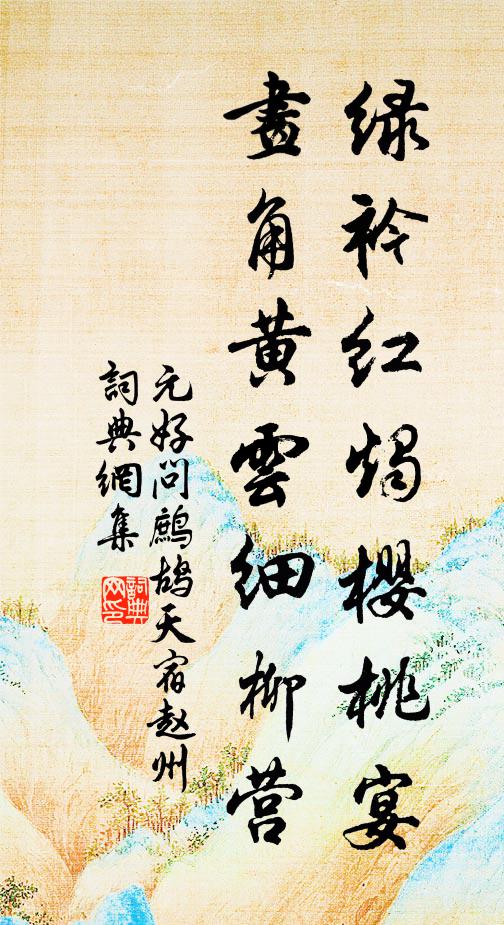 绿衿红烛樱桃宴
畫角黄雲细柳营
元好问鷓鸪天宿赵州
詞典網集
詞典网印